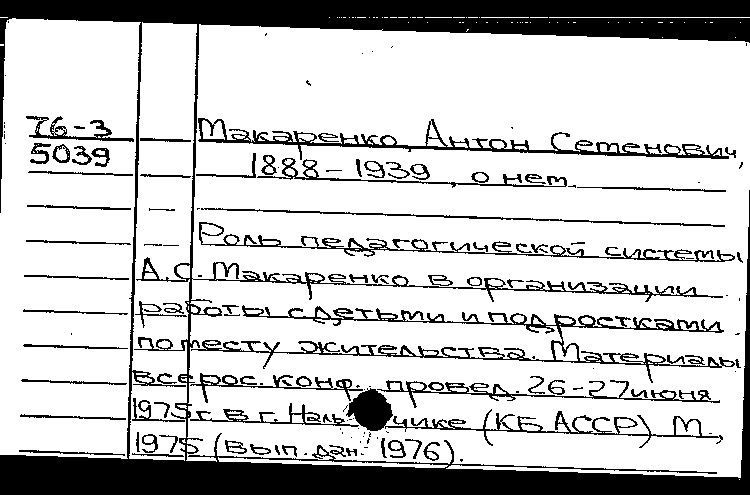 76-3 Макаренко, Антон Семенович,
5039 1888-1939, о нем.
Роль педагогической системы
А.С. Макаренко в организации
работы с детьми и подростками
по месту жительства. Материалы
всерос. конф. провед. 26-27 июня
1975 г. в г. Нальчике (КБ АССР) М.,
1975 (Вып. дан. 1976).